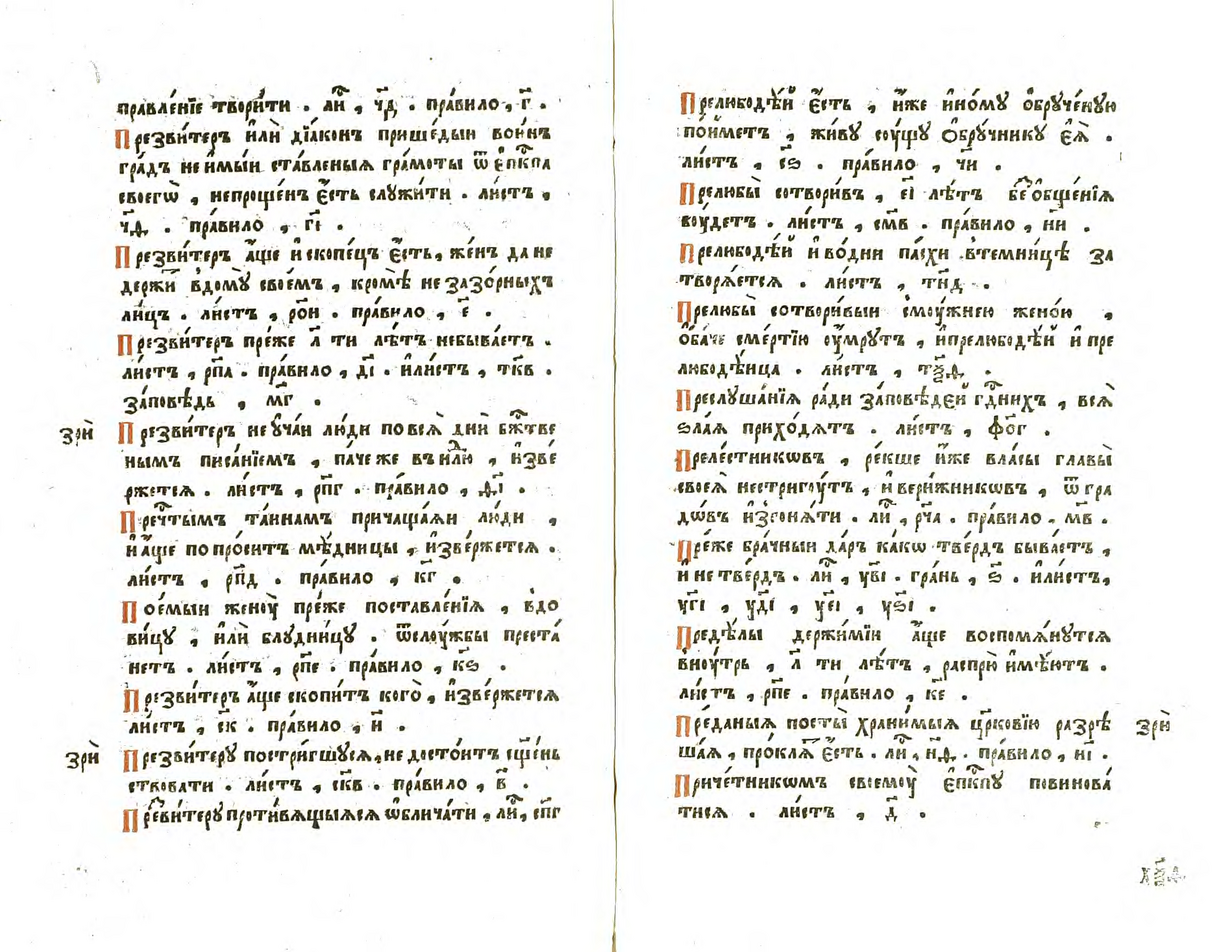 правле́нїе твори́ти . ли̑ , ч҃д . пра́вило , г҃ .
Презви́теръ и҆лѝ дїа́конъ прише́дыи во и҆́нъ
гра́дъ не и҆мы́и ста́вленыѧ гра́моты ѿ є҆п҃кпа
своегѡ̀ , непроще́нъ є҆́сть слꙋжи́ти . ли́стъ ,
ч҃д . пра́вило , г҃і .
Презви́теръ а҆́ще и҆ скопе́цъ є҆́сть , же́нъ да не
держи́ вдомꙋ̀ свое́мъ , кромѣ̀ не зазо́рныхъ
ли́цъ . ли́стъ , ро҃и . пра́вило , є҃ .
Презви́теръ пре́же л҃ ти лѣ́тъ небыва́етъ .
ли́стъ , рп҃а . пра́вило , д҃і . и҆ли́стъ , тк҃в .
за́повѣдь , м҃г .
зрѝ
Презви́теръ не ᲂу҆ча́и лю́ди по всѧ̀ дни̑ бж҃тве
нымъ писа́нїемъ , па́че же въ н҃лю , и҆зве
ржетсѧ . ли́стъ , рп҃г . пра́вило , ѳ҃і .
Преч҃тымъ та́инамъ причаща́ѧи лю́ди ,
и҆ а҆́ще попро́ситъ мѣ́дницы , и҆зве́ржетсѧ .
ли́стъ , рп҃д . пра́вило , к҃г .
Пое́мыи женоу̀ пре́же поставле́нїѧ , вдо
ви́цꙋ , и҆лѝ блꙋдни́цꙋ . ѿслоу́жбы преста́
нетъ . ли́стъ , рп҃е . пра́вило , к҃ѕ .
Презви́теръ а҆́ще скопи́тъ кого̀ , и҆зве́ржетсѧ
ли́стъ , с҃к . пра́вило , и҃ .
зрѝ
Презви́терꙋ постри́гшꙋсѧ , не досто́итъ сщ҃е́нь
ствовати . ли́стъ , ск҃в . пра́вило , в҃ .
Презви́терꙋ проти́вѧщыѧсѧ ѡ҆блича́ти , ли̑ , сп҃г
Прелюбодѣ́й є҆́сть , и҆́же и҆но́мꙋ ѡ҆брꙋче́нꙋю
по́йметъ , жи́вꙋ сꙋ́щꙋ ѡ҆брꙋ́чникꙋ є҆ѧ̀ .
ли́стъ , с҃ѕ . пра́вило , ч҃и .
Прелюбы̀ сотвори́въ , є҃і лѣ́тъ без̾ѡбще́нїѧ
воу́детъ . ли́стъ , см҃в . пра́вило , н҃и .
Прелюбодѣ́й и҆ во́дни па́схи втемни́цѣ за
творѧ́етсѧ . ли́стъ , тн҃д .
Прелюбы̀ сотвори́выи смоу́жнею жено́ю ,
ѻ҆ба́че сме́ртїю оу҆́мрꙋтъ , и҆прелюбодѣ́й и҆ пре
любодѣ́ица . ли́стъ , тѯ҃д .
Преслꙋша́нїѧ ра́ди за́повѣдей гд҃нихъ , всѧ̀
ѕла́ѧ прихо́дѧтъ . ли́стъ , фо҃г .
Преле́стникѡвъ , ре́кше и҆́же власы̀ главы̀
своеѧ̀ нестригоу́тъ , и҆ вери́жникѡвъ , ѿ гра
дѡ́въ и҆згонѧ́ти . ли̑ , рч҃а . пра́вило . м҃в .
Пре́же бра́чныи да́ръ ка́кѡ тве́рдъ быва́етъ ,
и҆ не тве́рдъ . ли̑ , ув҃і . гра́нь , ѕ҃ . и҆ли́стъ ,
уг҃і , уд҃і , уе҃і , уѕ҃і .
Предѣ́лы держи́мїи а҆́ще воспомѧ́нꙋтсѧ
вноу́трь , л҃ ти лѣ́тъ , распрѝ и҆мѣ́ютъ .
ли́стъ , рп҃е . пра́вило , к҃е .
зрѝ
Пре́даныѧ посты̀ храни́мыѧ цр҃ковїю разрѣ
ша́ѧ , про́клѧтъ є҆́сть . ли̑ , н҃д . пра́вило , и҃і .
Приче́тникѡмъ своемоу̀ є҆п҃кпꙋ повинова́
тисѧ . ли́стъ , д҃ .